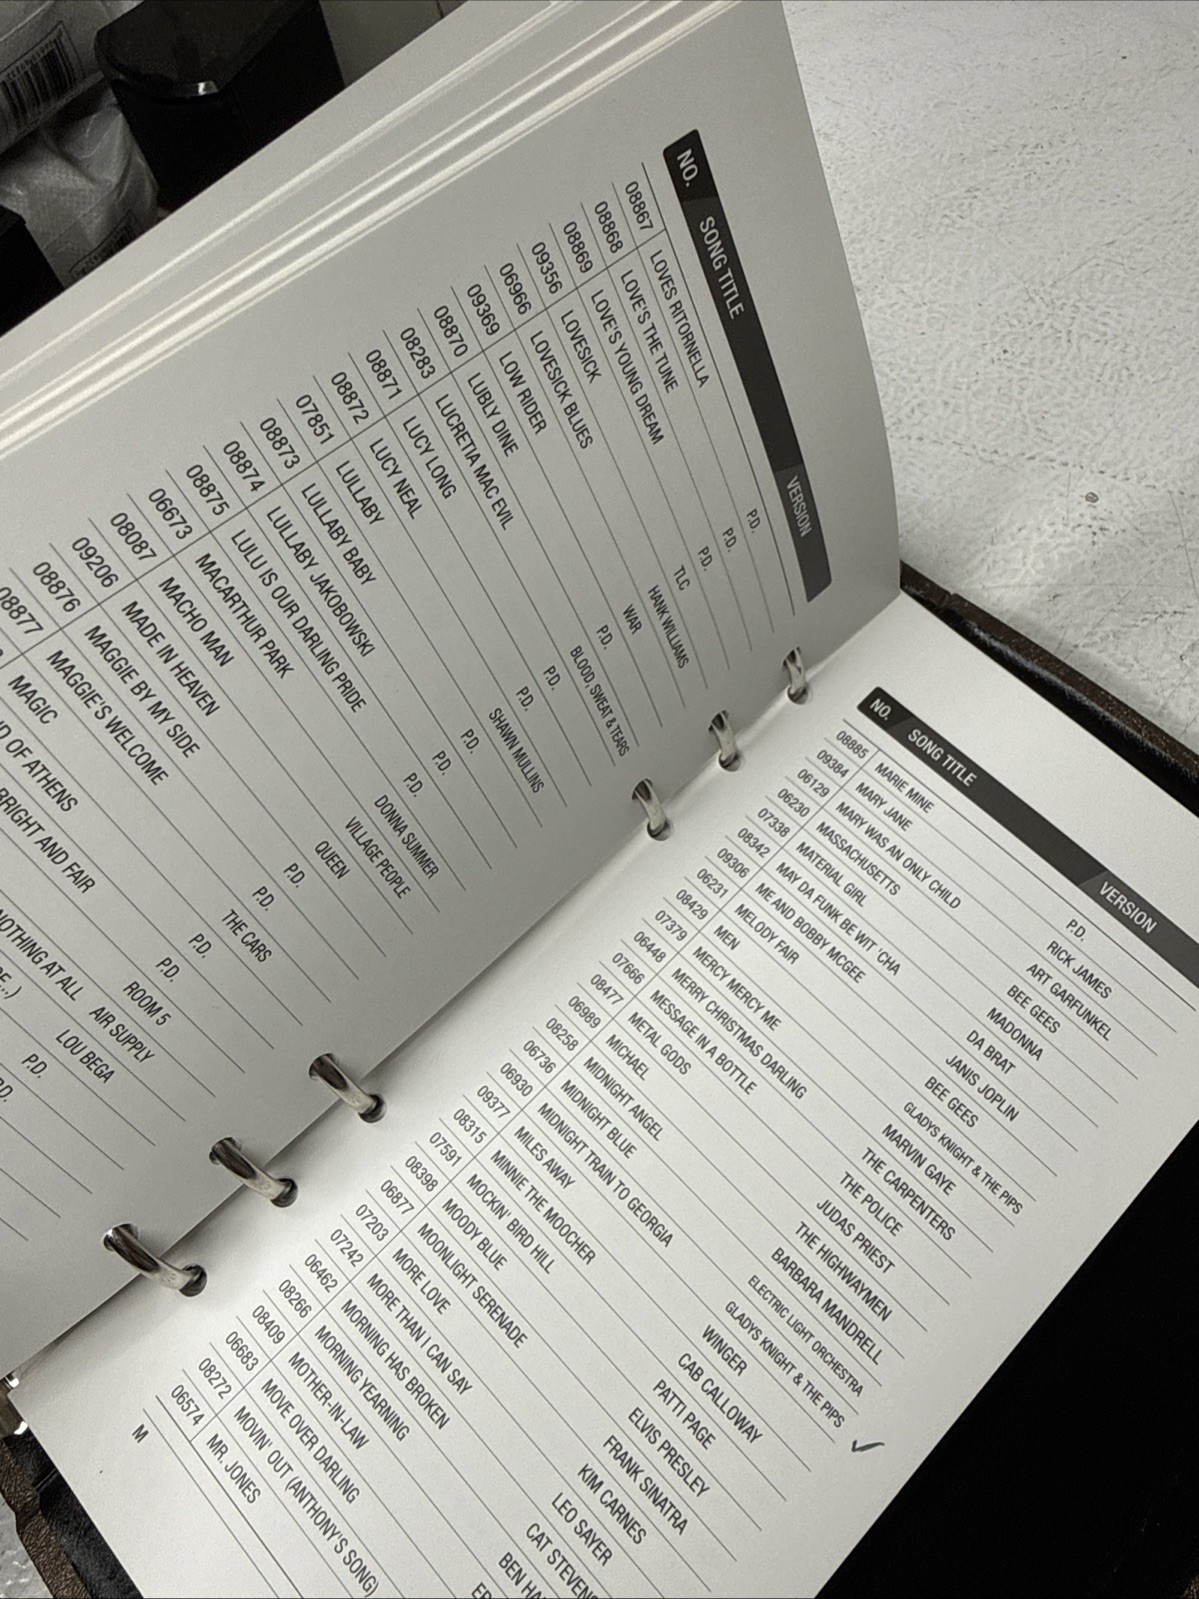 NO. SONG TITLE VERSION
08867 LOVES RITORNELLA P.D.
08868 LOVE'S THE TUNE P.D.
08869 LOVE'S YOUNG DREAM P.D.
09356 LOVESICK TLC
06966 LOVESICK BLUES HANK WILLIAMS
09369 LOW RIDER WAR
08870 LUBLY DINE P.D.
08283 LUCRETIA MAC EVIL BLOOD, SWEAT & TEARS
08871 LUCY LONG P.D.
08872 LUCY NEAL P.D.
07851 LULLABY SHAWN MULLINS
08873 LULLABY BABY P.D.
08874 LULLABY JAKOBOWSKI P.D.
08875 LULU IS OUR DARLING PRIDE P.D.
06673 MACARTHUR PARK DONNA SUMMER
08087 MACHO MAN VILLAGE PEOPLE
09206 MADE IN HEAVEN QUEEN
08876 MAGGIE BY MY SIDE P.D.
08877 MAGGIE'S WELCOME P.D.
MAGIC THE CARS
OF ATHENS P.D.
BRIGHT AND FAIR P.D.
ROOM 5
NOTHING AT ALL AIR SUPPLY
LOU BEGA
P.D.
NO. SONG TITLE VERSION
08885 MARIE MINE P.D.
09384 MARY JANE RICK JAMES
06129 MARY WAS AN ONLY CHILD ART GARFUNKEL
06230 MASSACHUSETTS BEE GEES
07338 MATERIAL GIRL MADONNA
08342 MAY DA FUNK BE WIT 'CHA DA BRAT
09306 ME AND BOBBY MCGEE JANIS JOPLIN
06231 MELODY FAIR BEE GEES
08429 MEN GLADYS KNIGHT & THE PIPS
07379 MERCY MERCY ME MARVIN GAYE
06448 MERRY CHRISTMAS DARLING THE CARPENTERS
07666 MESSAGE IN A BOTTLE THE POLICE
08477 METAL GODS JUDAS PRIEST
06989 MICHAEL THE HIGHWAYMEN
08258 MIDNIGHT ANGEL BARBARA MANDRELL
06736 MIDNIGHT BLUE ELECTRIC LIGHT ORCHESTRA
06930 MIDNIGHT TRAIN TO GEORGIA GLADYS KNIGHT & THE PIPS
09377 MILES AWAY WINGER
08315 MINNIE THE MOOCHER CAB CALLOWAY
07591 MOCKIN' BIRD HILL PATTI PAGE
08398 MOODY BLUE ELVIS PRESLEY
06877 MOONLIGHT SERENADE FRANK SINATRA
07203 MORE LOVE KIM CARNES
07242 MORE THAN I CAN SAY LEO SAYER
06462 MORNING HAS BROKEN CAT STEVENS
08266 MORNING YEARNING BEN
08409 MOTHER-IN-LAW
06683 MOVE OVER DARLING
08272 MOVIN' OUT (ANTHONY'S SONG)
06574 MR. JONES
M